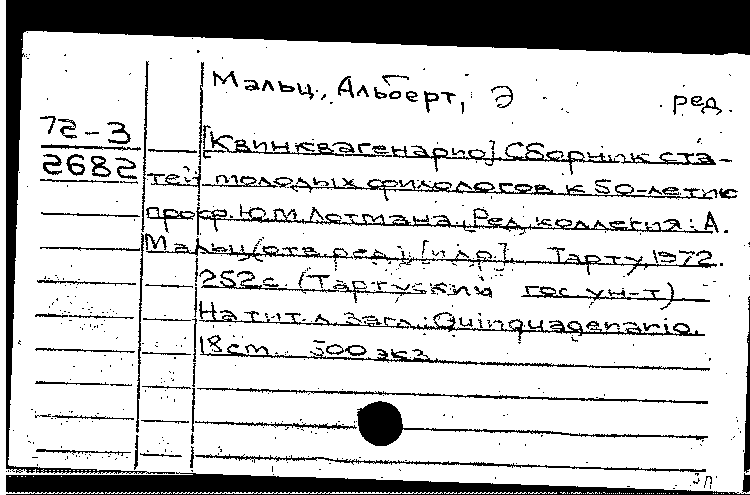 Мальц, Альберт, Э ред.
72-3
2682
[Квинквагенарио] Сборник ста-
тей молодых филологов к 50-летию
проф. Ю.М. Лотмана. Ред. коллегия: А.
Мальц (отв. ред.), [и др]. Тарту, 1972.
252 с. (Тартуский гос ун-т)
На тит. л. загл.: Quinquagenario.
18 cm. 500 экз.